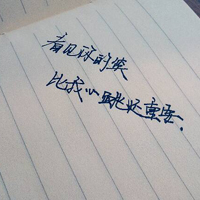 看见你的候
比我心跳还重要.